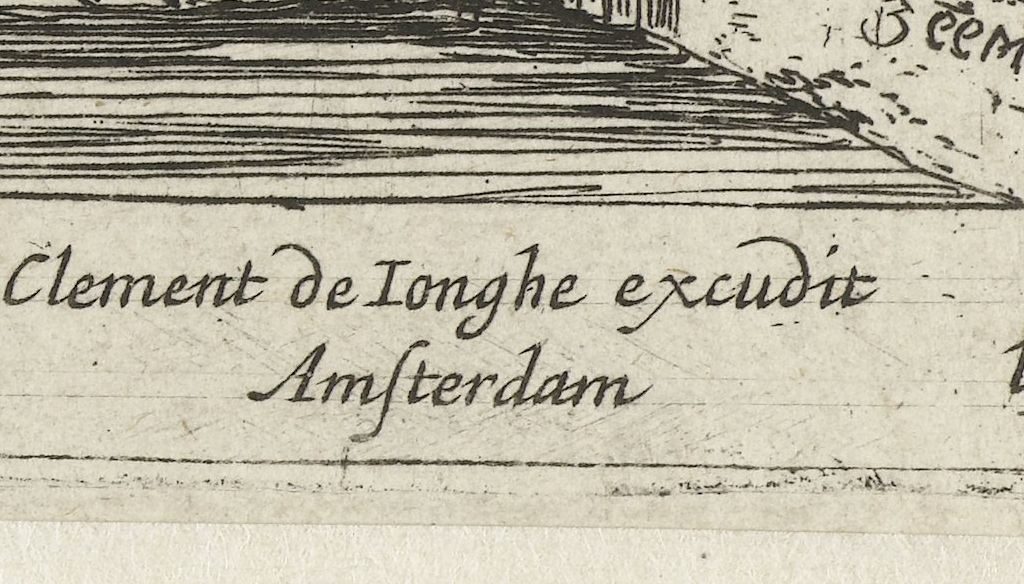 Beem
Clement de Ionghe excudit
Amſterdam